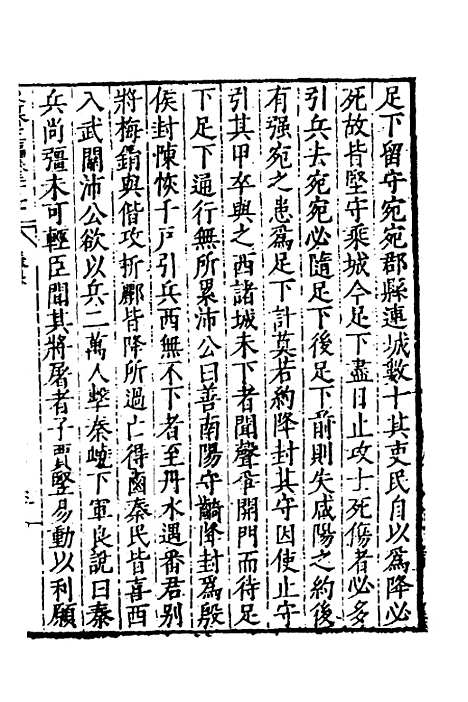 足下留守宛宛郡縣連城數十其吏民自以爲降必
死故皆堅守乘城今足下盡日止攻士死傷者必多
引兵去宛宛必隨足下後足下前則失咸陽之約後
有强宛之患爲足下計莫若約降封其守因使止守
引其甲卒與之西諸城未下者聞聲爭開門而待足
下足下通行無所累沛公曰善南陽守齮降封爲殷
侯封陳恢千戸引兵西無不下者至丹水遇番君别
將梅鋗與偕攻析酈皆降所過亡得鹵秦民皆喜西
入武關沛公欲以兵二萬人擊秦嶢下軍良說曰秦
兵尚彊未可輕臣聞其將屠者子賈豎易動以利願